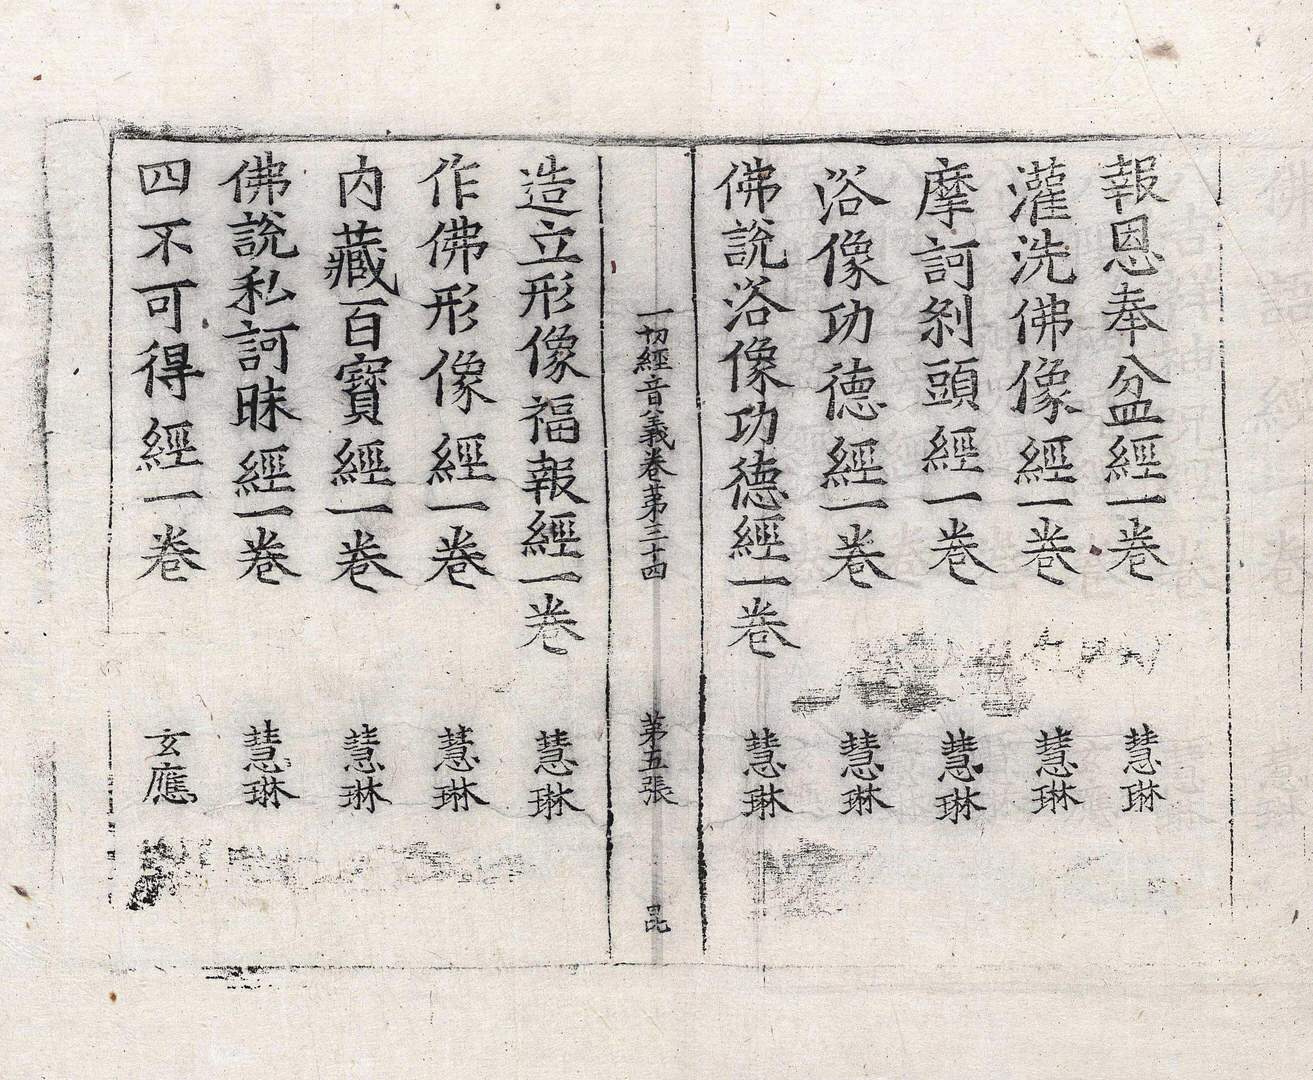 報恩奉盆經一卷 慧琳
灌洗佛像經一卷 慧琳
摩訶剎頭經一卷 慧琳
浴像功德經一卷 慧琳
佛說浴像功德經一卷 慧琳
一切經音義卷第三十四 第五張 毘
造立形像福報經一卷 慧琳
作佛形像經一卷 慧琳
内藏百寶經一卷 慧琳
佛說私訶昧經一卷 慧琳
四不可得經一卷 玄應